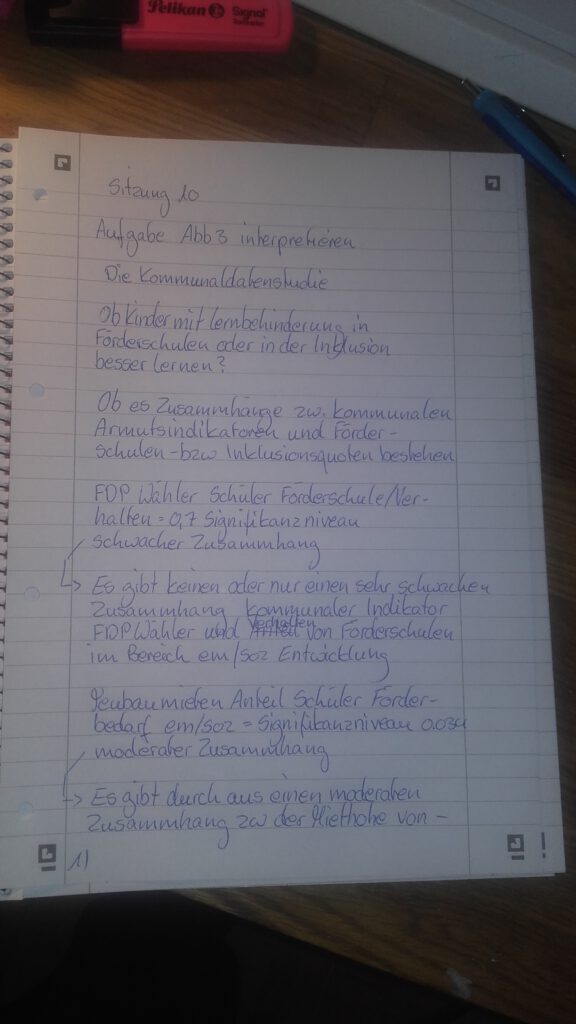 Pelikan Signal
Sitzung 10
Aufgabe Abb 3 interpretieren
Die Kommunaldatenstudie
Ob Kinder mit lernbehinderung in
Förderschulen oder in der Inklusion
besser lernen?
Ob es Zusammhänge zw. kommunalen
Armutsindikatoren und Förder-
schulen-bzw Inklusionsquoten bestehen
FDP Wähler Schüler Förderschule/Ver-
halten = 0,7 Signifikanzniveau
schwacher Zusammhang
Es gibt keinen oder nur einen sehr schwachen
Zusammhang kommunaler Indikator
FDP Wähler und Verhalten von Förderschulen
im Bereich em/soz Entwicklung
Neubaumieten Anteil Schüler Förder-
bedarf em/soz = Signifikanzniveau 0.034
moderater Zusammhang
Es gibt durch aus einen moderaten
Zusammhang zw der Miethöhe von -
1)